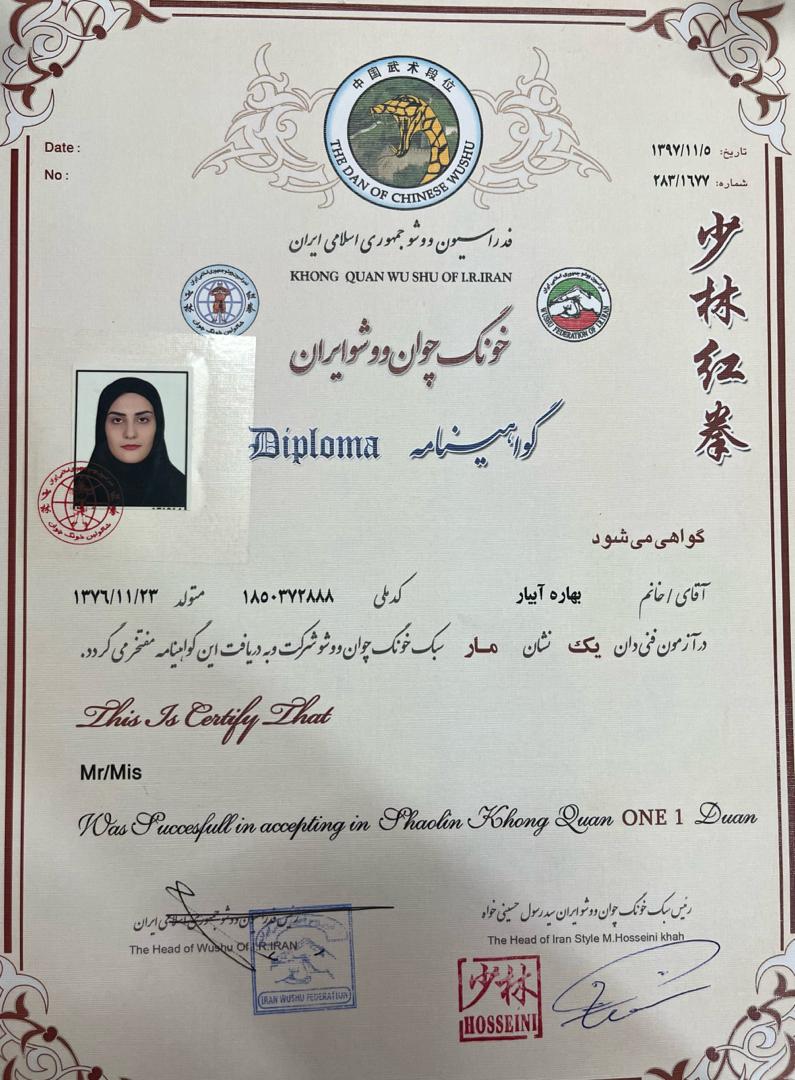 中国武术段位
THE DAN OF CHINESE WUSHU
Date :
No :
تاریخ: ۱۳۹۷/۱۱/۵
شماره: ۲۸۳/۱۶۷۷
فدراسیون ووشو جمهوری اسلامی ایران
KHONG QUAN WU SHU OF I.R.IRAN
WUSHU FEDERATION OF I.R.IRAN
خونگ چوان ووشو ایران
少林红拳
Diploma گواهینامه
گواهی می شود
آقای / خانم بهاره آبیار کد ملی ۱۸۵۰۳۷۲۸۸۸ متولد ۱۳۷۶/۱۱/۲۳
در آزمون فنی دان یک نشان مار سبک خونگ چوان ووشو شرکت و به دریافت این گواهینامه مفتخر می گردد.
This Is Certify That
Mr/Mis
Was Succesfull in accepting in Shaolin Khong Quan ONE 1 Duan
رئیس سبک خونگ چوان ووشو ایران سید رسول حسینی خواه
The Head of Iran Style M.Hosseini khah
رئیس فدراسیون ووشو جمهوری اسلامی ایران
The Head of Wushu Of I.R.IRAN
IRAN WUSHU FEDERATION
少林
HOSSEINI